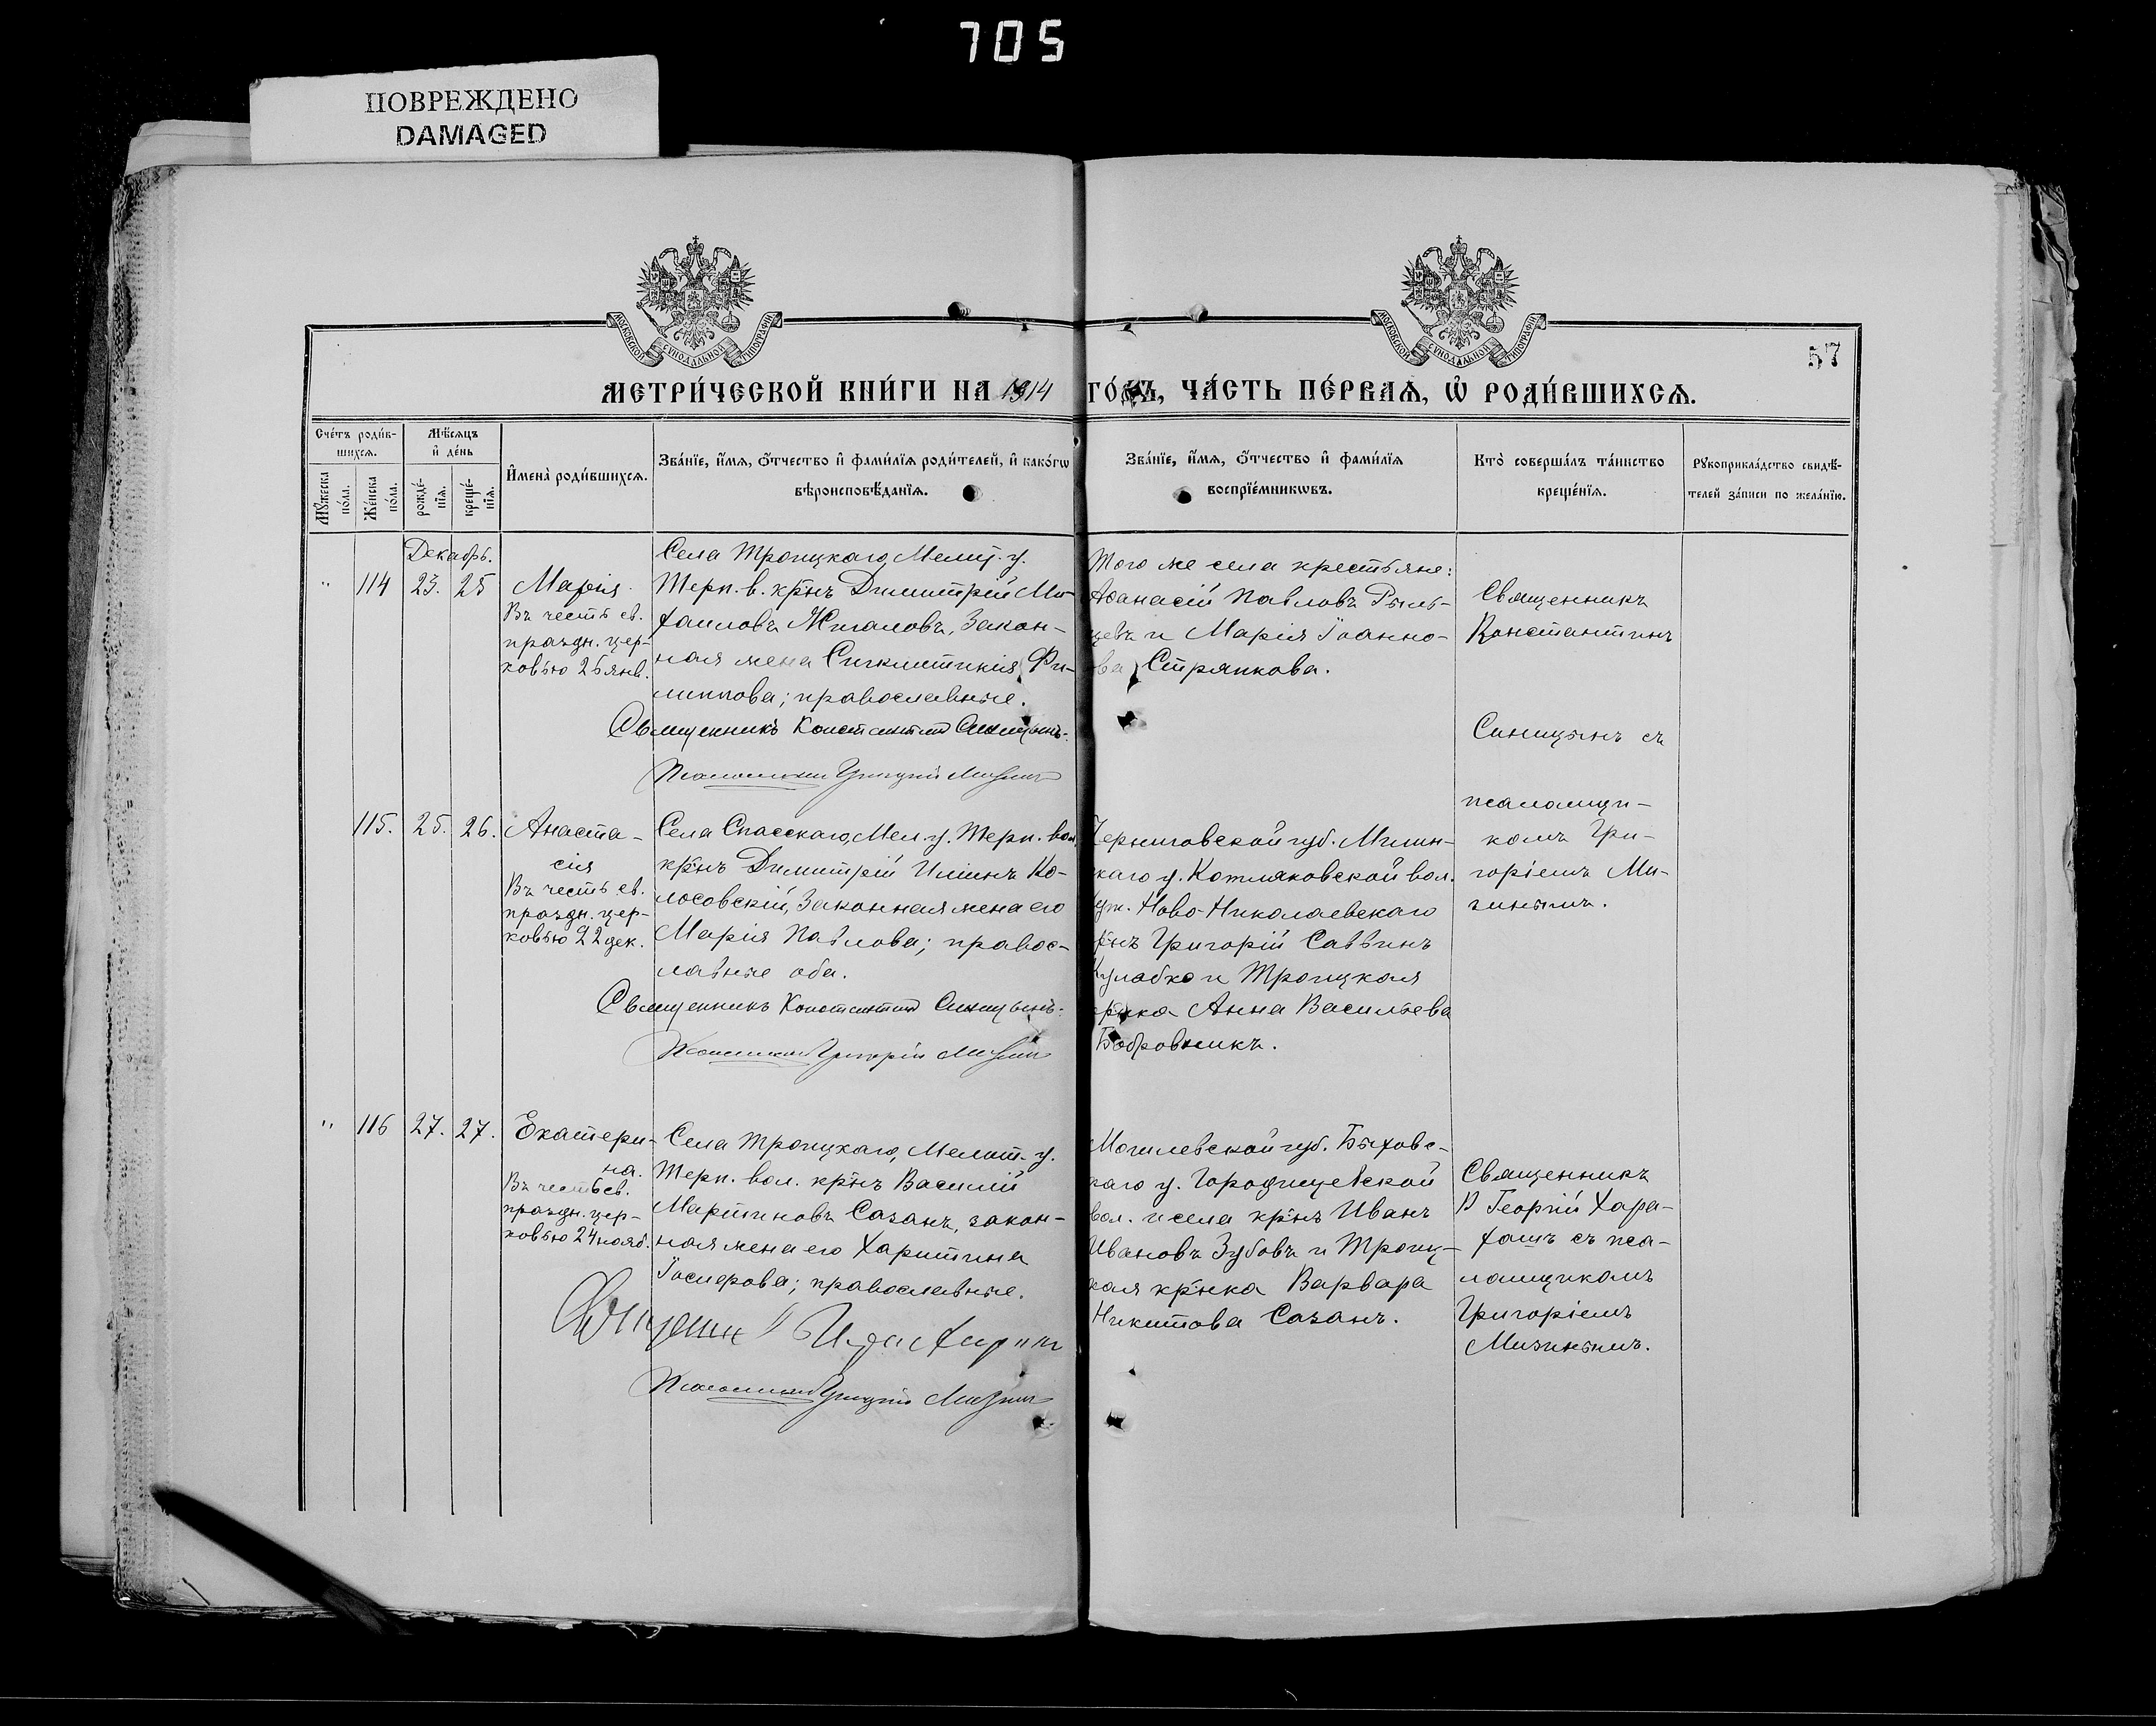 705
ПОВРЕЖДЕНО
DAMAGED
МОСКОВСКОЙ СѴНОДАЛЬНОЙ ТИПОГРАФІИ
МОСКОВСКОЙ СѴНОДАЛЬНОЙ ТИПОГРАФІИ
57
МЕТРИ́ЧЕСКОЙ КНИ́ГИ НА 1914 ГО́ДЪ, ЧА́СТЬ ПЕ́РВАѦ, Ѡ҆ РОДИ́ВШИХСѦ.
Сче́тъ роди́в-
шихсѧ.
Мꙋ́жеска
по́ла.
Же́нска
по́ла.
Мѣ́сѧцъ
и҆ де́нь
рожде́-
нїѧ.
креще́-
нїѧ.
И҆мена̀ роди́вшихсѧ.
Зва́нїе, и҆́мѧ, ѻ҆́тчество и҆ фами́лїѧ роди́телей, и҆ како́гѡ
вѣроисповѣ́данїѧ.
Зва́нїе, и҆́мѧ, ѻ҆́тчество и҆ фами́лїѧ
воспрїе́мникѡвъ.
Кто̀ соверша́лъ та́инство
креще́нїѧ.
Рꙋкоприкла́дство свидѣ́-
телей за́писи по жела́нїю.
Декабрь.
" 114 23. 25
Марія.
Въ честь св.
праздн. цер-
ковью 26 янв.
Села Троицкаго, Мелит. у.
Терп. в. кр-нъ Димитрій Ми-
хаиловъ Жигаловъ, Закон-
ная жена Сигклитикія Фи-
липпова; православные.
Священникъ Константинъ Синицынъ.
Псаломщикъ Григорій Мизинъ
Того же села крестьяне:
Аѳанасій Павловъ Рыль-
цевъ и Марія Іоанно-
ва Стряпкова.
Священникъ
Константинъ
Синицынъ съ
псаломщи-
комъ Гри-
горіемъ Ми-
зинымъ.
115. 25. 26.
Анаста-
сія
Въ честь св.
праздн. цер-
ковью 22 дек.
Села Спасскаго, Мел. у. Терп. вол.
кр-нъ Димитрій Ильинъ Ко-
лосовскій, Законная жена его
Марія Павлова; правос-
лавные оба.
Священникъ Константинъ Синицынъ.
Псаломщикъ Григорій Мизинъ
Черниговской губ. Мглин-
скаго у. Котляковской вол.
Ново-Николаевскаго
Григорій Саввинъ
и Троицкая
Анна Васильева
Бобровникъ.
" 116 27. 27.
Екатери-
на.
Въ честь св.
праздн. цер-
ковью 24 нояб.
Села Троицкаго, Мелит. у.
Терп. вол. кр-нъ Василій
Мартиновъ Сазанъ, закон-
ная жена его Харитина
Іосифова; православные.
Священникъ
Псаломщикъ Григорій Мизинъ
Могилевской губ. Быховс-
каго у. Городищевской
вол. и села кр-нъ Иванъ
Ивановъ Зубовъ и Троиц-
кая кр-нка Варвара
Никитова Сазанъ.
Священникъ
Георгій Хара-
хашъ съ пса-
ломщикомъ
Григоріемъ
Мизинымъ.